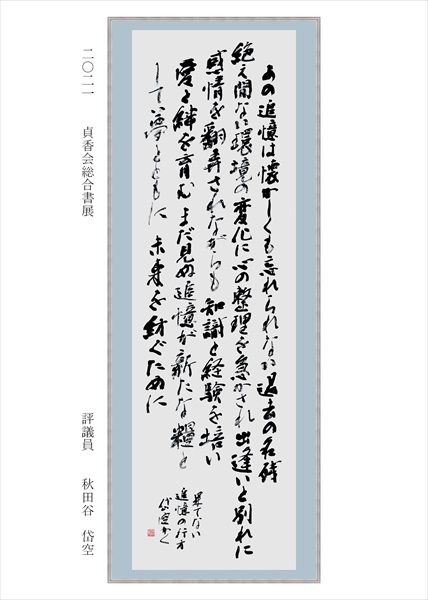 あの追憶は懐かしくも忘れられない過去の名残
絶え間ない環境の変化に心の整理を急かされ出逢いと別れに
感情を翻弄されながらも知識と経験を培い
愛と絆を育むまだ見ぬ追憶が新たな糧と
して夢とともに未来を紡ぐために
果てない
追憶の行方
岱空かく
二〇二一 貞香会総合書展
評議員 秋田谷 岱空